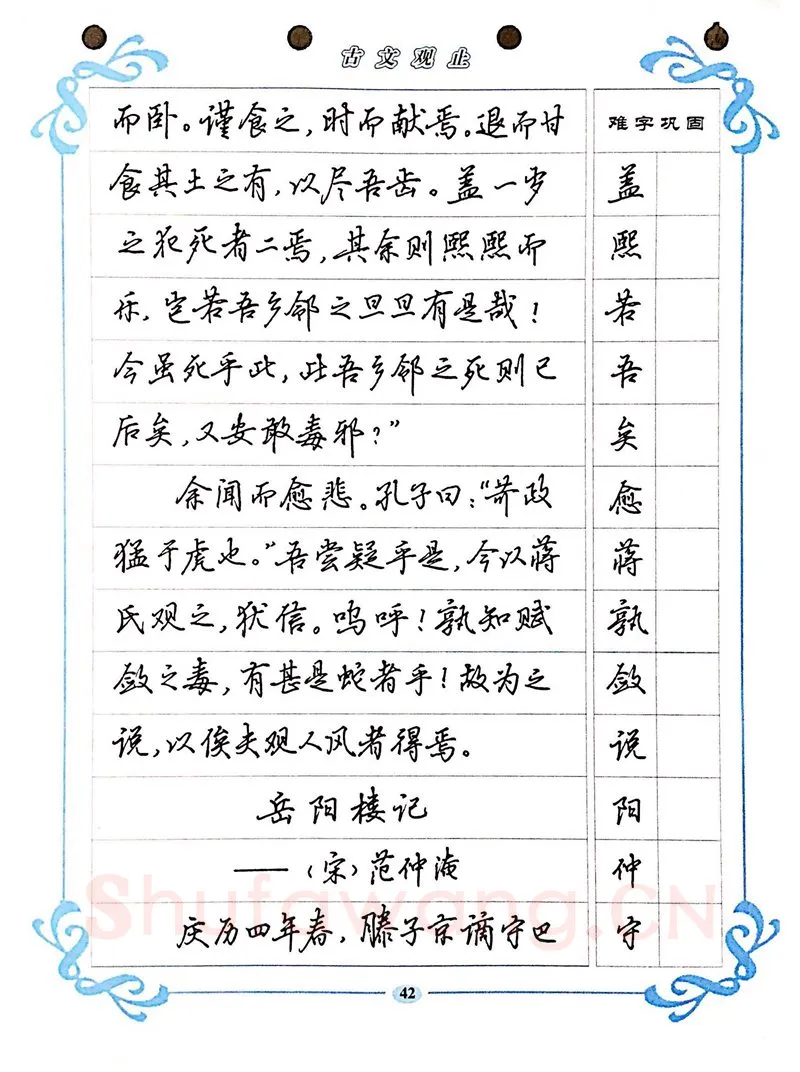 古文观止
而卧。谨食之，时而献焉。退而甘
难字巩固
食其土之有，以尽吾齿。盖一岁
盖
之犯死者二焉，其余则熙熙而
熙
乐，岂若吾乡邻之旦旦有是哉！
若
今虽死乎此，比吾乡邻之死则已
吾
后矣，又安敢毒邪？”
矣
余闻而愈悲。孔子曰：“苛政
愈
猛于虎也。”吾尝疑乎是，今以蒋
蒋
氏观之，犹信。呜呼！孰知赋
孰
敛之毒，有甚是蛇者乎！故为之
敛
说，以俟夫观人风者得焉。
说
岳阳楼记
阳
——（宋）范仲淹
仲
庆历四年春，滕子京谪守巴
守
Shufawang.CN
42